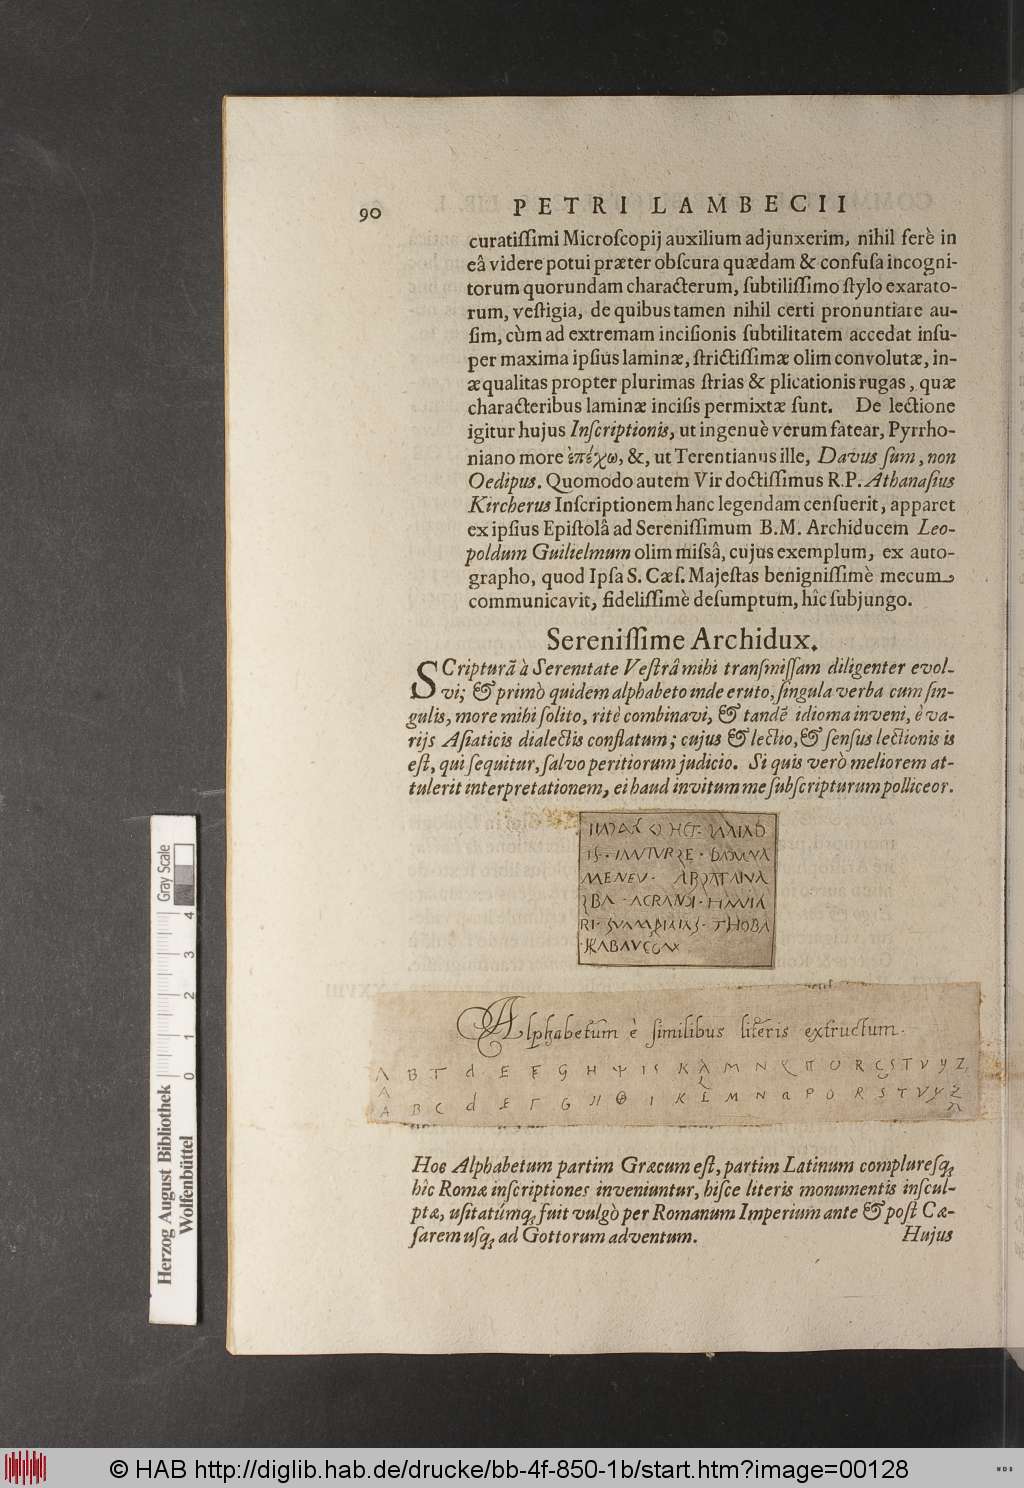 90 PETRI LAMBECII
curatiſſimi Microſcopij auxilium adjunxerim, nihil ferè in
eâ videre potui præter obſcura quædam & confuſa incogni-
torum quorundam characterum, ſubtiliſſimo ſtylo exarato-
rum, veſtigia, de quibus tamen nihil certi pronuntiare au-
ſim, cùm ad extremam inciſionis ſubtilitatem accedat inſu-
per maxima ipſius laminæ, ſtrictiſſimæ olim convolutæ, in-
æqualitas propter plurimas ſtrias & plicationis rugas, quæ
characteribus laminæ inciſis permixtæ ſunt. De lectione
igitur hujus Inſcriptionis, ut ingenuè verum fatear, Pyrrho-
niano more ἐπέχω, &, ut Terentianus ille, Davus ſum, non
Oedipus. Quomodo autem Vir doctiſſimus R.P. Athanaſius
Kircherus Inſcriptionem hanc legendam cenſuerit, apparet
ex ipſius Epiſtolâ ad Sereniſſimum B.M. Archiducem Leo-
poldum Guilielmum olim miſsâ, cujus exemplum, ex auto-
grapho, quod Ipſa S. Cæſ. Majeſtas benigniſſimè mecum
communicavit, fideliſſimè deſumptum, hîc ſubjungo.
Sereniſſime Archidux.
SCripturã à Serenitate Veſtrâ mihi tranſmiſſam diligenter evol-
vi; & primò quidem alphabeto inde eruto, ſingula verba cum ſin-
gulis, more mihi ſolito, ritè combinavi, & tandẽ idioma inveni, è va-
rijs Aſiaticis dialectis conflatum; cujus & lectio, & ſenſus lectionis is
eſt, qui ſequitur, ſalvo peritiorum judicio. Si quis verò meliorem at-
tulerit interpretationem, ei haud invitum me ſubſcripturum polliceor.
Alphabetum è ſimilibus literis extructum.
A B C d E Γ G H Θ I K L M N α P O R S T V Y Z
Hoc Alphabetum partim Græcum eſt, partim Latinum complureſq;
hîc Romæ inſcriptiones inveniuntur, hiſce literis monumentis inſcul-
ptæ, uſitatúmq; fuit vulgò per Romanum Imperium ante & poſt Cæ-
ſarem uſq; ad Gottorum adventum. Hujus
Gray Scale
4 3 2 1 0
Herzog August Bibliothek
Wolfenbüttel
© HAB http://diglib.hab.de/drucke/bb-4f-850-1b/start.htm?image=00128